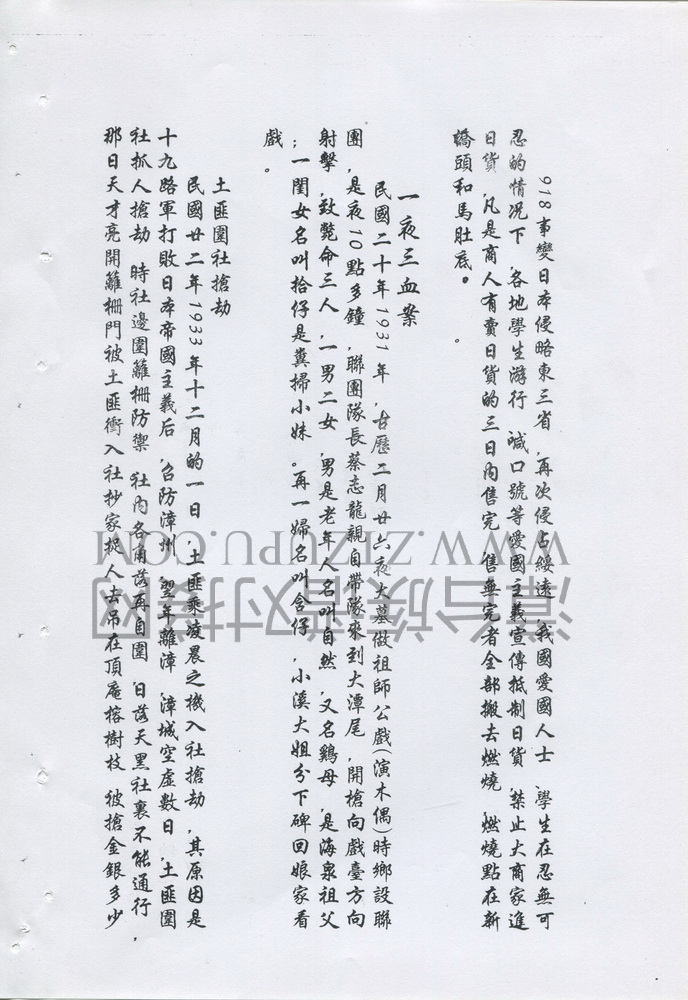 918事變日本侵略東三省,再次侵占綏遠,我國愛國人士,學生在忍無可
忍的情况下,各地學生游行,喊口號等愛國主義宣傳抵制日貨,禁止大商家進
日貨,凡是商人有賣日貨的三日内售完,售無完者全部搬去燃燒,燃燒點在新
橋頭和馬肚底。
一夜三血案
民國二十年1931年,古曆二月廿六夜大墓做祖師公戲(演木偶)時鄉設聯
團,是夜10點多鐘,聯團隊長蔡志龍親自帶隊來到大潭尾,開槍向戲臺方向
射擊,致斃命三人,一男二女,男是老年人名叫自然,又名鷄母,是海泉祖父
;一閨女名叫拾仔是糞掃小妹。再一婦名叫含仔,小溪大姐分下碑回娘家看
戲。
土匪圍社搶劫
民國廿二年1933年十二月的一日,土匪乘凌晨之機入社搶劫,其原因是
十九路軍打敗日本帝國主義后,召防漳州,翌年離漳,漳城空虛數日,土匪圍
社抓人搶劫,時社邊圍籬栅防禦,社内各角落再自圍,日落天黑社裏不能通行,
那日天才亮開籬栅門被土匪衝入社抄家捉人去吊在頂庵榕樹枝,被搶金銀多少
WWW.ZIZUPU.COM
漳台族譜对接网